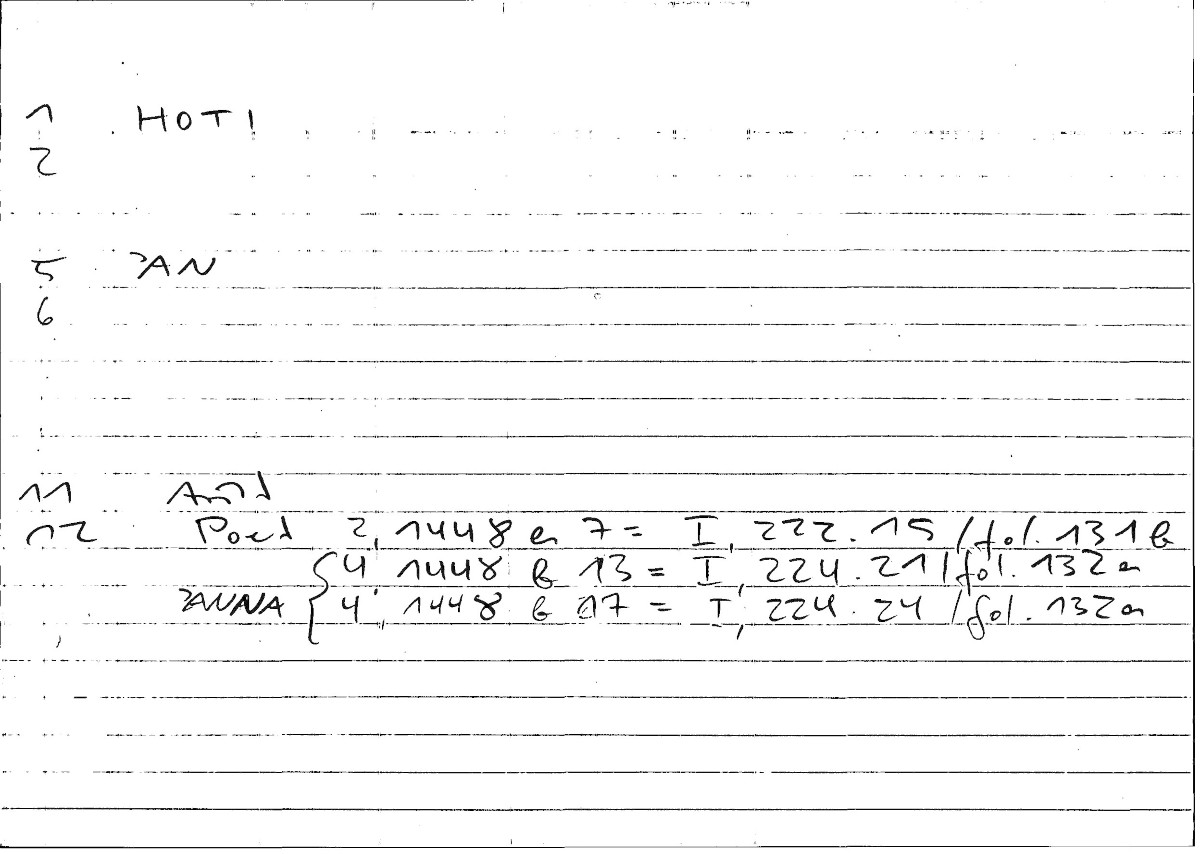 1 HOTI
2
5 ʾAN
6
11 
12 Poet 2, 1448 a 7 = I, 222.15 / fol. 131 b
4, 1448 b 13 = I, 224.21 / fol. 132 a
ʾANNA 4, 1448 b 17 = I, 224.24 / fol. 132 a